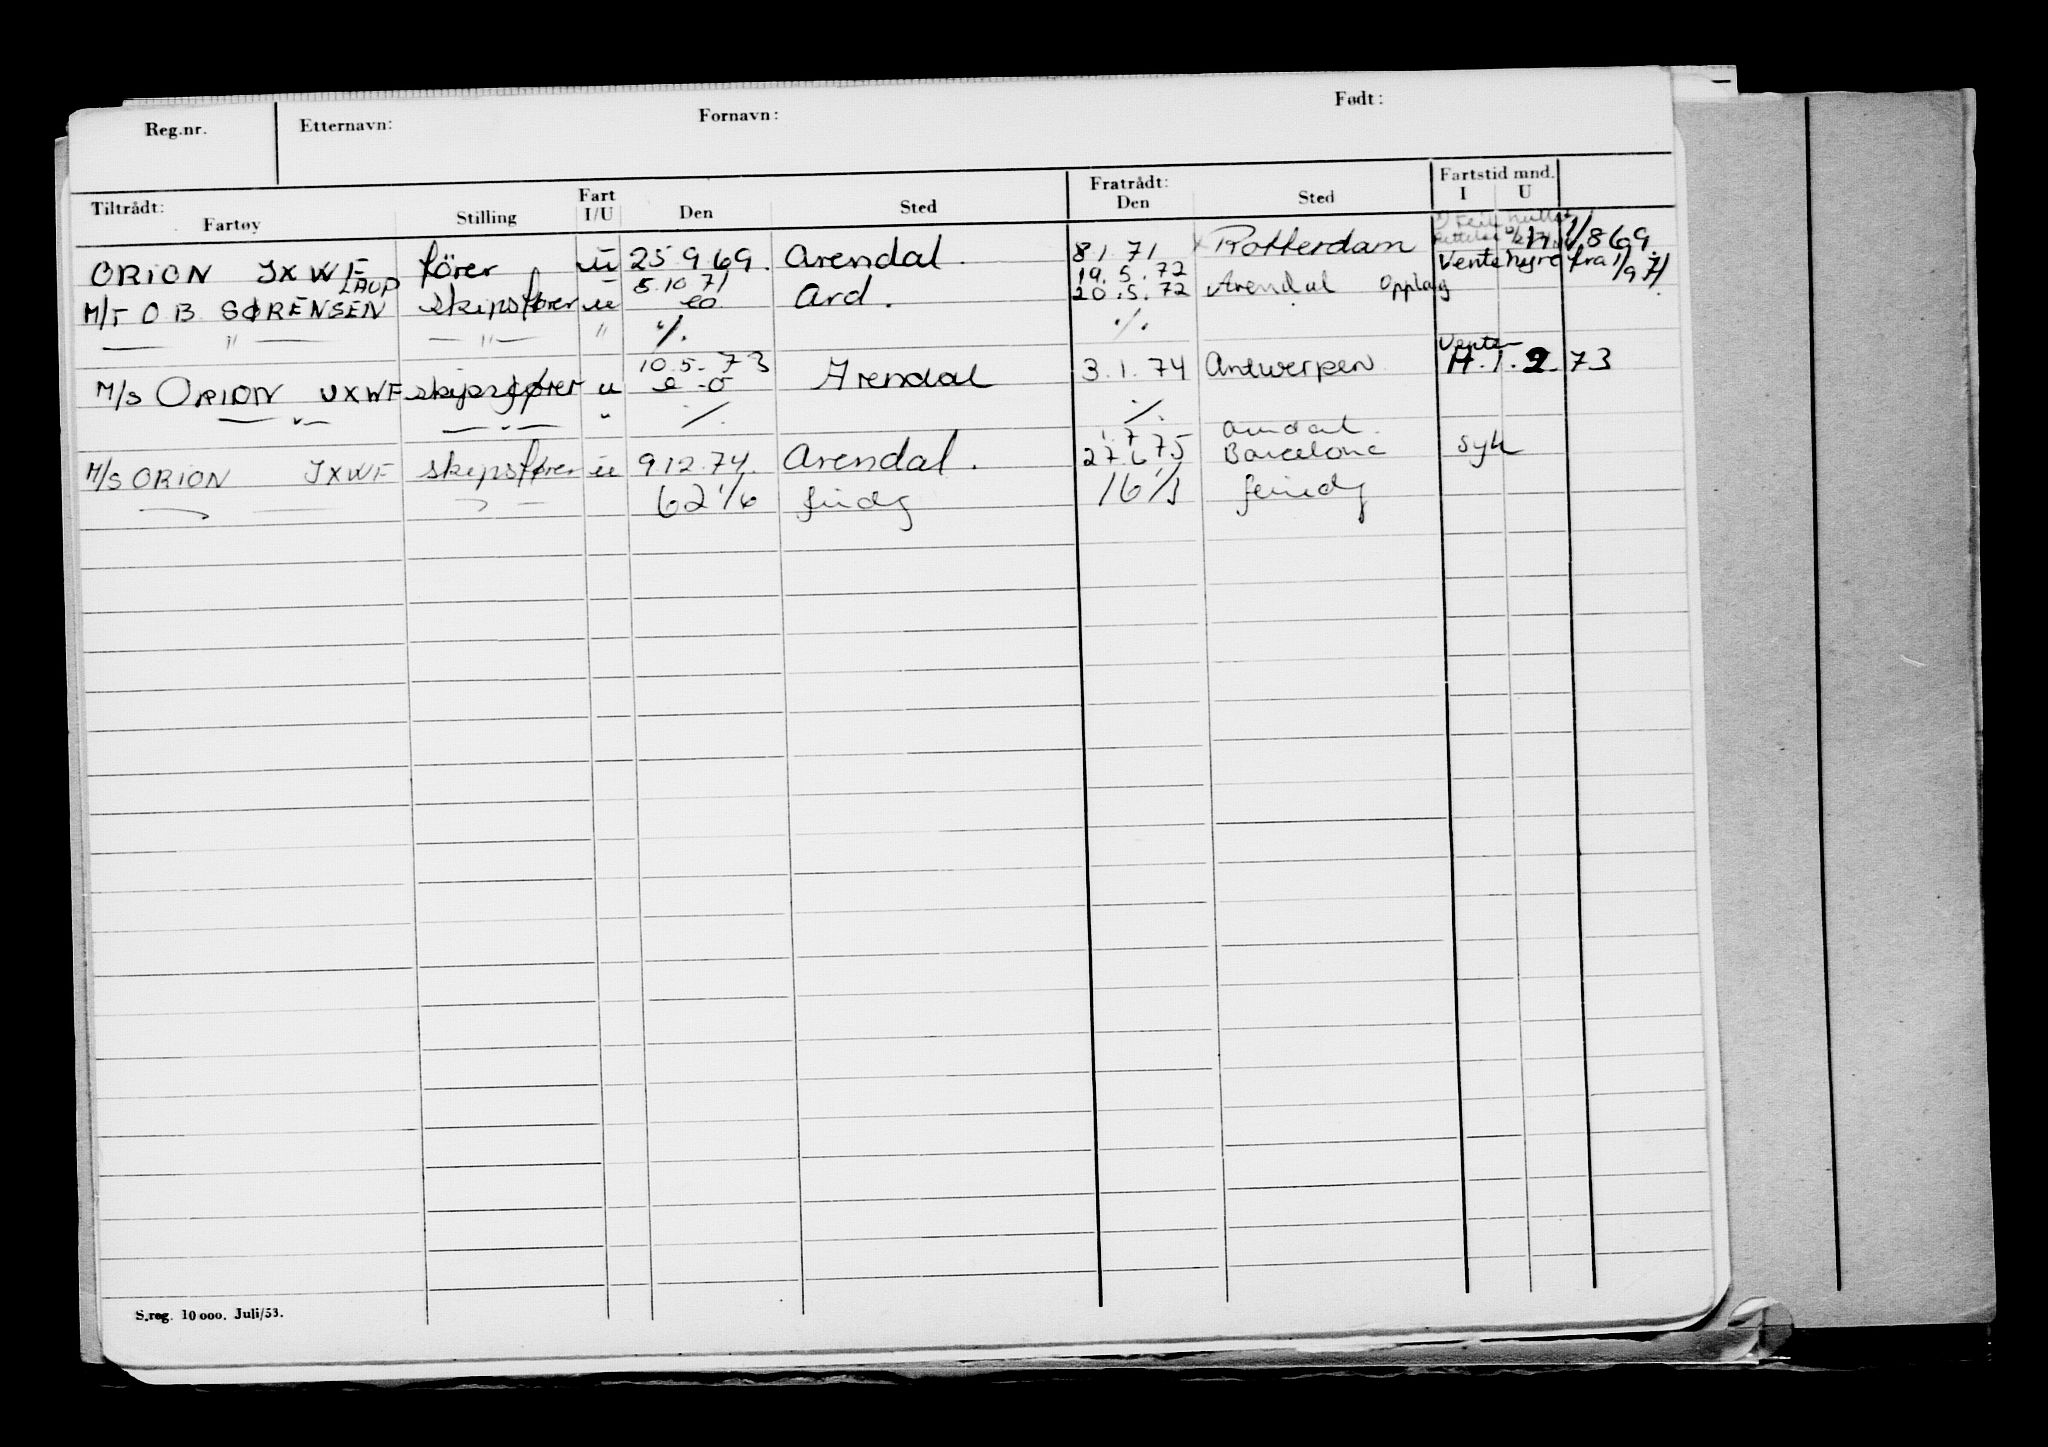 Reg.nr. Etternavn: Fornavn: Født:
Tiltrådt: Fratrådt: Fartstid mnd.
Fartøy Stilling Fart I/U Den Sted Den Sted I U
ORION JXWF fører u 25 9 69. Arendal. 8 1. 71 x Rotterdam H 1/8 69.
LAUP 5.10 71 19. 5. 72 Ventehyre fra 1/9 71.
M/T O B SØRENSEN skipsfører u eo Ard. 20. 5. 72 Arendal Opplag
— " — — " — " ./. ./.
10.5. 73 Vente
M/S ORION JXWF skipsfører u e-o Arendal 3. 1. 74 Antwerpen H. 1. 2. 73
— " — — " — " ./. ./.
1. 7 Arendal.
M/S ORION JXWF skipsfører u 9 12. 74. Arendal. 27. 6 75 Barcelona syk
62 1/6 16 1/1
S.reg. 10 000. Juli/53.